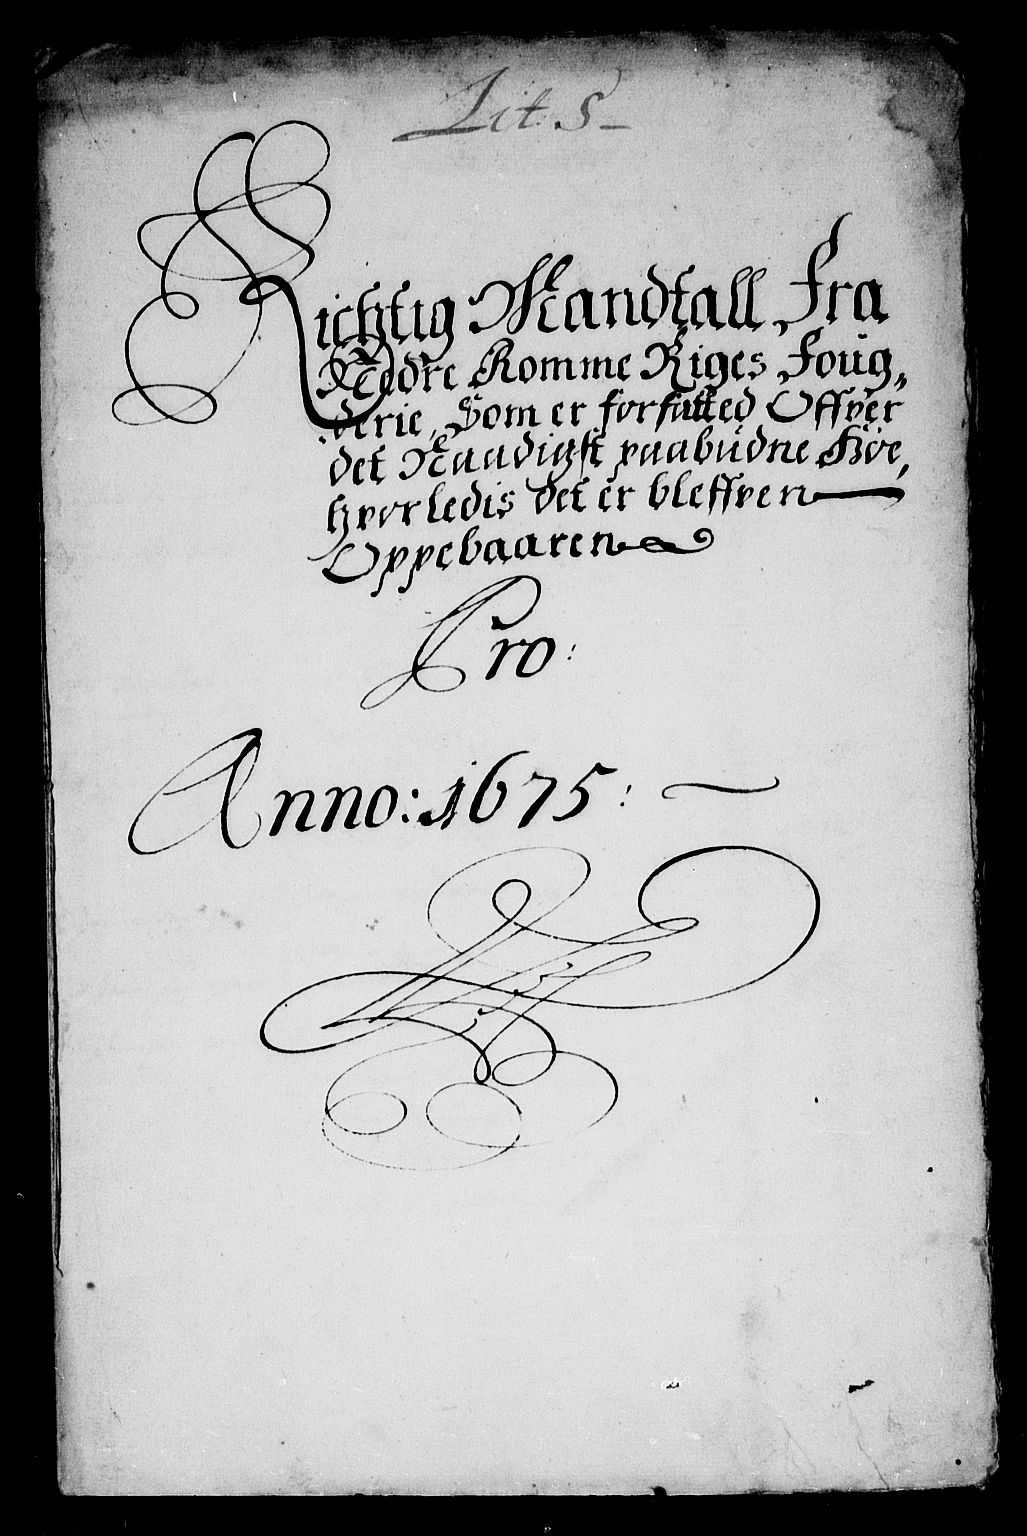 Lit: S
Richtig Mandtall Fra
Nedre Romme Riges Foug„
derie, Som er forfatted Offver
det Naadigst paabudne Høe,
hvorledis det er bleffven
Oppebaaren
Pro:
Anno: 1675: